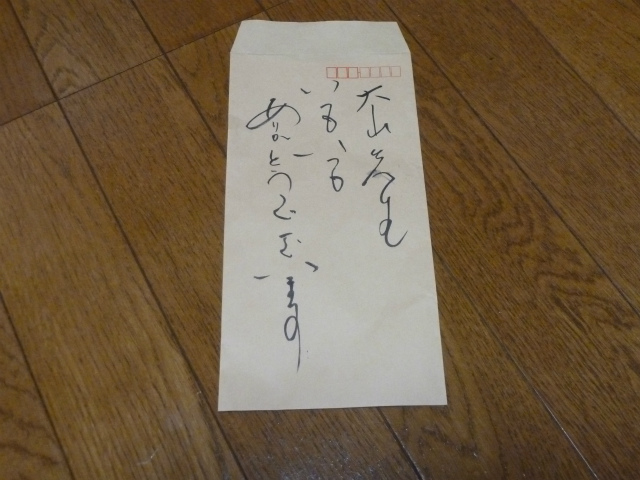 大山先生
いろいろ
ありがとうございます